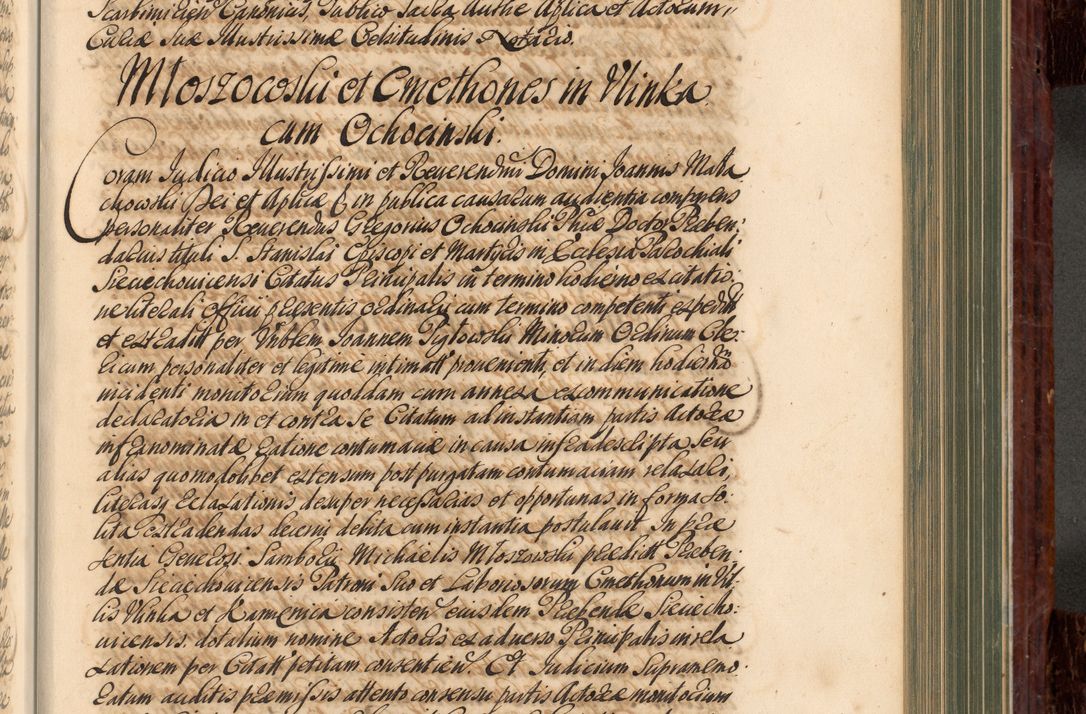 Scarbimirien Canonicus, Publico Sacra Authe Aplica et Actorum
Curiæ Suæ Illustrissimæ Celsitudinis Notario.
Mloszowski et Cmethones in Ulinka
cum Ochocinski.
Coram Judicio Illustrissimi et Reverendmi Domini Joannis Mala
chowski Dei et Aplicæ &c in publica causarum audientia comparens
personaliter Reverendus Gregorius Ochocinski Phiæ Doctor Præben
darius tituli S. Stanislai Episcopi et Martyris in Ecclesia Parochiali
Sieciechovicensi Citatus Principalis in termino hodierno ex citatio
ne literali officii præsentis ordinarii cum termino competenti expedit
et extradit per Vnblem Joannem Pstowski Minorum Ordinum Cle
ricum personaliter et legitime intimatt provenienti, et in diem hodiernū
incidenti monitorium quoddam cum annexa excommunicatione
declaratoria in et contra se Citatum ad instantiam partis Actoræ
infranominatæ, ratione contumaciæ in causa infradescripta seu
alias quomodolibet extensum post purgatam contumaciam relaxari
literasq relaxationis desuper necessarias et opportunas in forma so
lita extradendas decerni debita cum instantia postulavit. In præ
sentia Generosi Samboris Michaelis Mloszowski præditt Præben
dæ Sieciechovicensis Patroni Suo et Laboriosorum Cmethonum in Vil
lis Ulinka et Kamienica consisten. eiusdem Præbendæ Sieciecho
vicensis dotalium nomine Actoris ex adverso Principalis in rela
xationem per Citatt petitam consentien. Et Judicium Supranomi
natum auditis præmissis attento consensu partis Actoræ monitorium